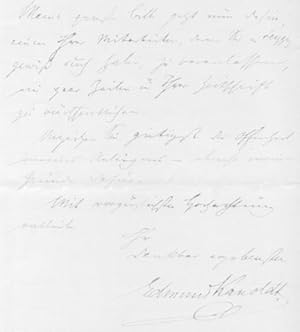 Meine ganze Bitte geht nun dahin,
einen Ihrer Mitarbeiter, deren Sie
gewiß auch haben, zu veranlassen,
ein paar Zeilen in Ihrer Zeitschrift
zu veröffentlichen.
gütigst die Offenheit
meines
Gründe
Mit vorzüglichster Hochachtung
verbleibe
Ihr
dankbar ergebenster
Edmund Kanoldt.